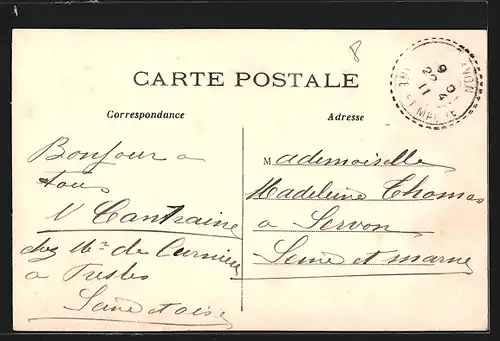 8
CARTE POSTALE
Correspondance
Adresse
Bonjour a
tous
V Cantraine
chez Mr de
a Presles
Seine et oise
Mademoiselle
Madeleine Thomas
a Servon
Seine et marne